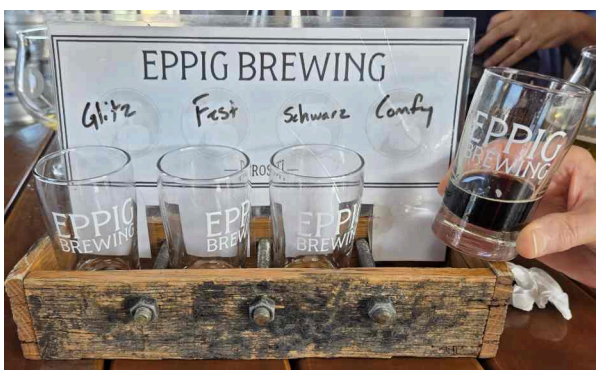 EPPIG BREWING
Glitz Fest Schwarz Comfy
EPPIG
BREWING
EPPIG
BREWING
EPP
BREW
EPPI
BREWIN